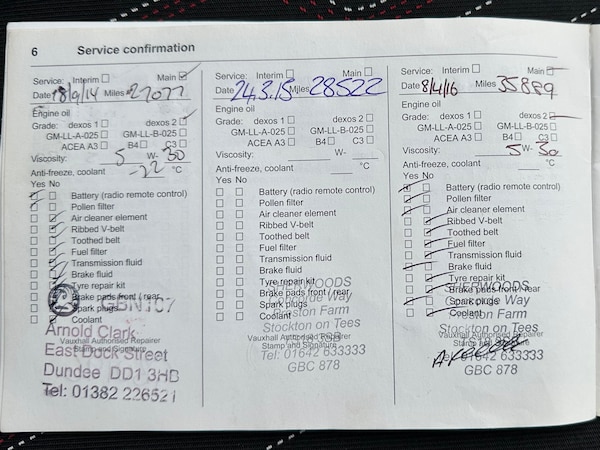 6 Service confirmation
Service: Interim ☐ Main ☑
Date 18/9/14 Miles 27077
Engine oil
Grade: dexos 1 ☐ dexos 2 ☑
GM-LL-A-025 ☐ GM-LL-B-025 ☐
ACEA A3 ☐ B4 ☐ C3 ☐
Viscosity: 5 W- 30
Anti-freeze, coolant -22 °C
Yes No
Battery (radio remote control)
Pollen filter
Air cleaner element
Ribbed V-belt
Toothed belt
Fuel filter
Transmission fluid
Brake fluid
Tyre repair kit
Brake pads front / rear
Spark plugs
Coolant
Vauxhall Authorised Repairer
Stamp and Signature
GBN107
Arnold Clark
East Dock Street
Dundee DD1 3HB
Tel: 01382 226521
Service: Interim ☐ Main ☐
Date 24.3.15 Miles 28522
Engine oil
Grade: dexos 1 ☐ dexos 2 ☐
GM-LL-A-025 ☐ GM-LL-B-025 ☐
ACEA A3 ☐ B4 ☐ C3 ☐
Viscosity: W-
Anti-freeze, coolant °C
Yes No
Battery (radio remote control)
Pollen filter
Air cleaner element
Ribbed V-belt
Toothed belt
Fuel filter
Transmission fluid
Brake fluid
Tyre repair kit
Brake pads front / rear
Spark plugs
Coolant
Vauxhall Authorised Repairer
Stamp and Signature
SHERWOODS
Way
Preston Farm
Stockton on Tees
Tel: 01642 633333
GBC 878
Service: Interim ☐ Main ☑
Date 8/4/16 Miles 35889
Engine oil
Grade: dexos 1 ☐ dexos 2 ☑
GM-LL-A-025 ☐ GM-LL-B-025 ☐
ACEA A3 ☐ B4 ☐ C3 ☐
Viscosity: 5 W- 30
Anti-freeze, coolant °C
Yes No
Battery (radio remote control)
Pollen filter
Air cleaner element
Ribbed V-belt
Toothed belt
Fuel filter
Transmission fluid
Brake fluid
Tyre repair kit
Brake pads front / rear
Spark plugs
Coolant
Vauxhall Authorised Repairer
Stamp and Signature
SHERWOODS
Way
Preston Farm
Stockton on Tees
Tel: 01642 633333
GBC 878